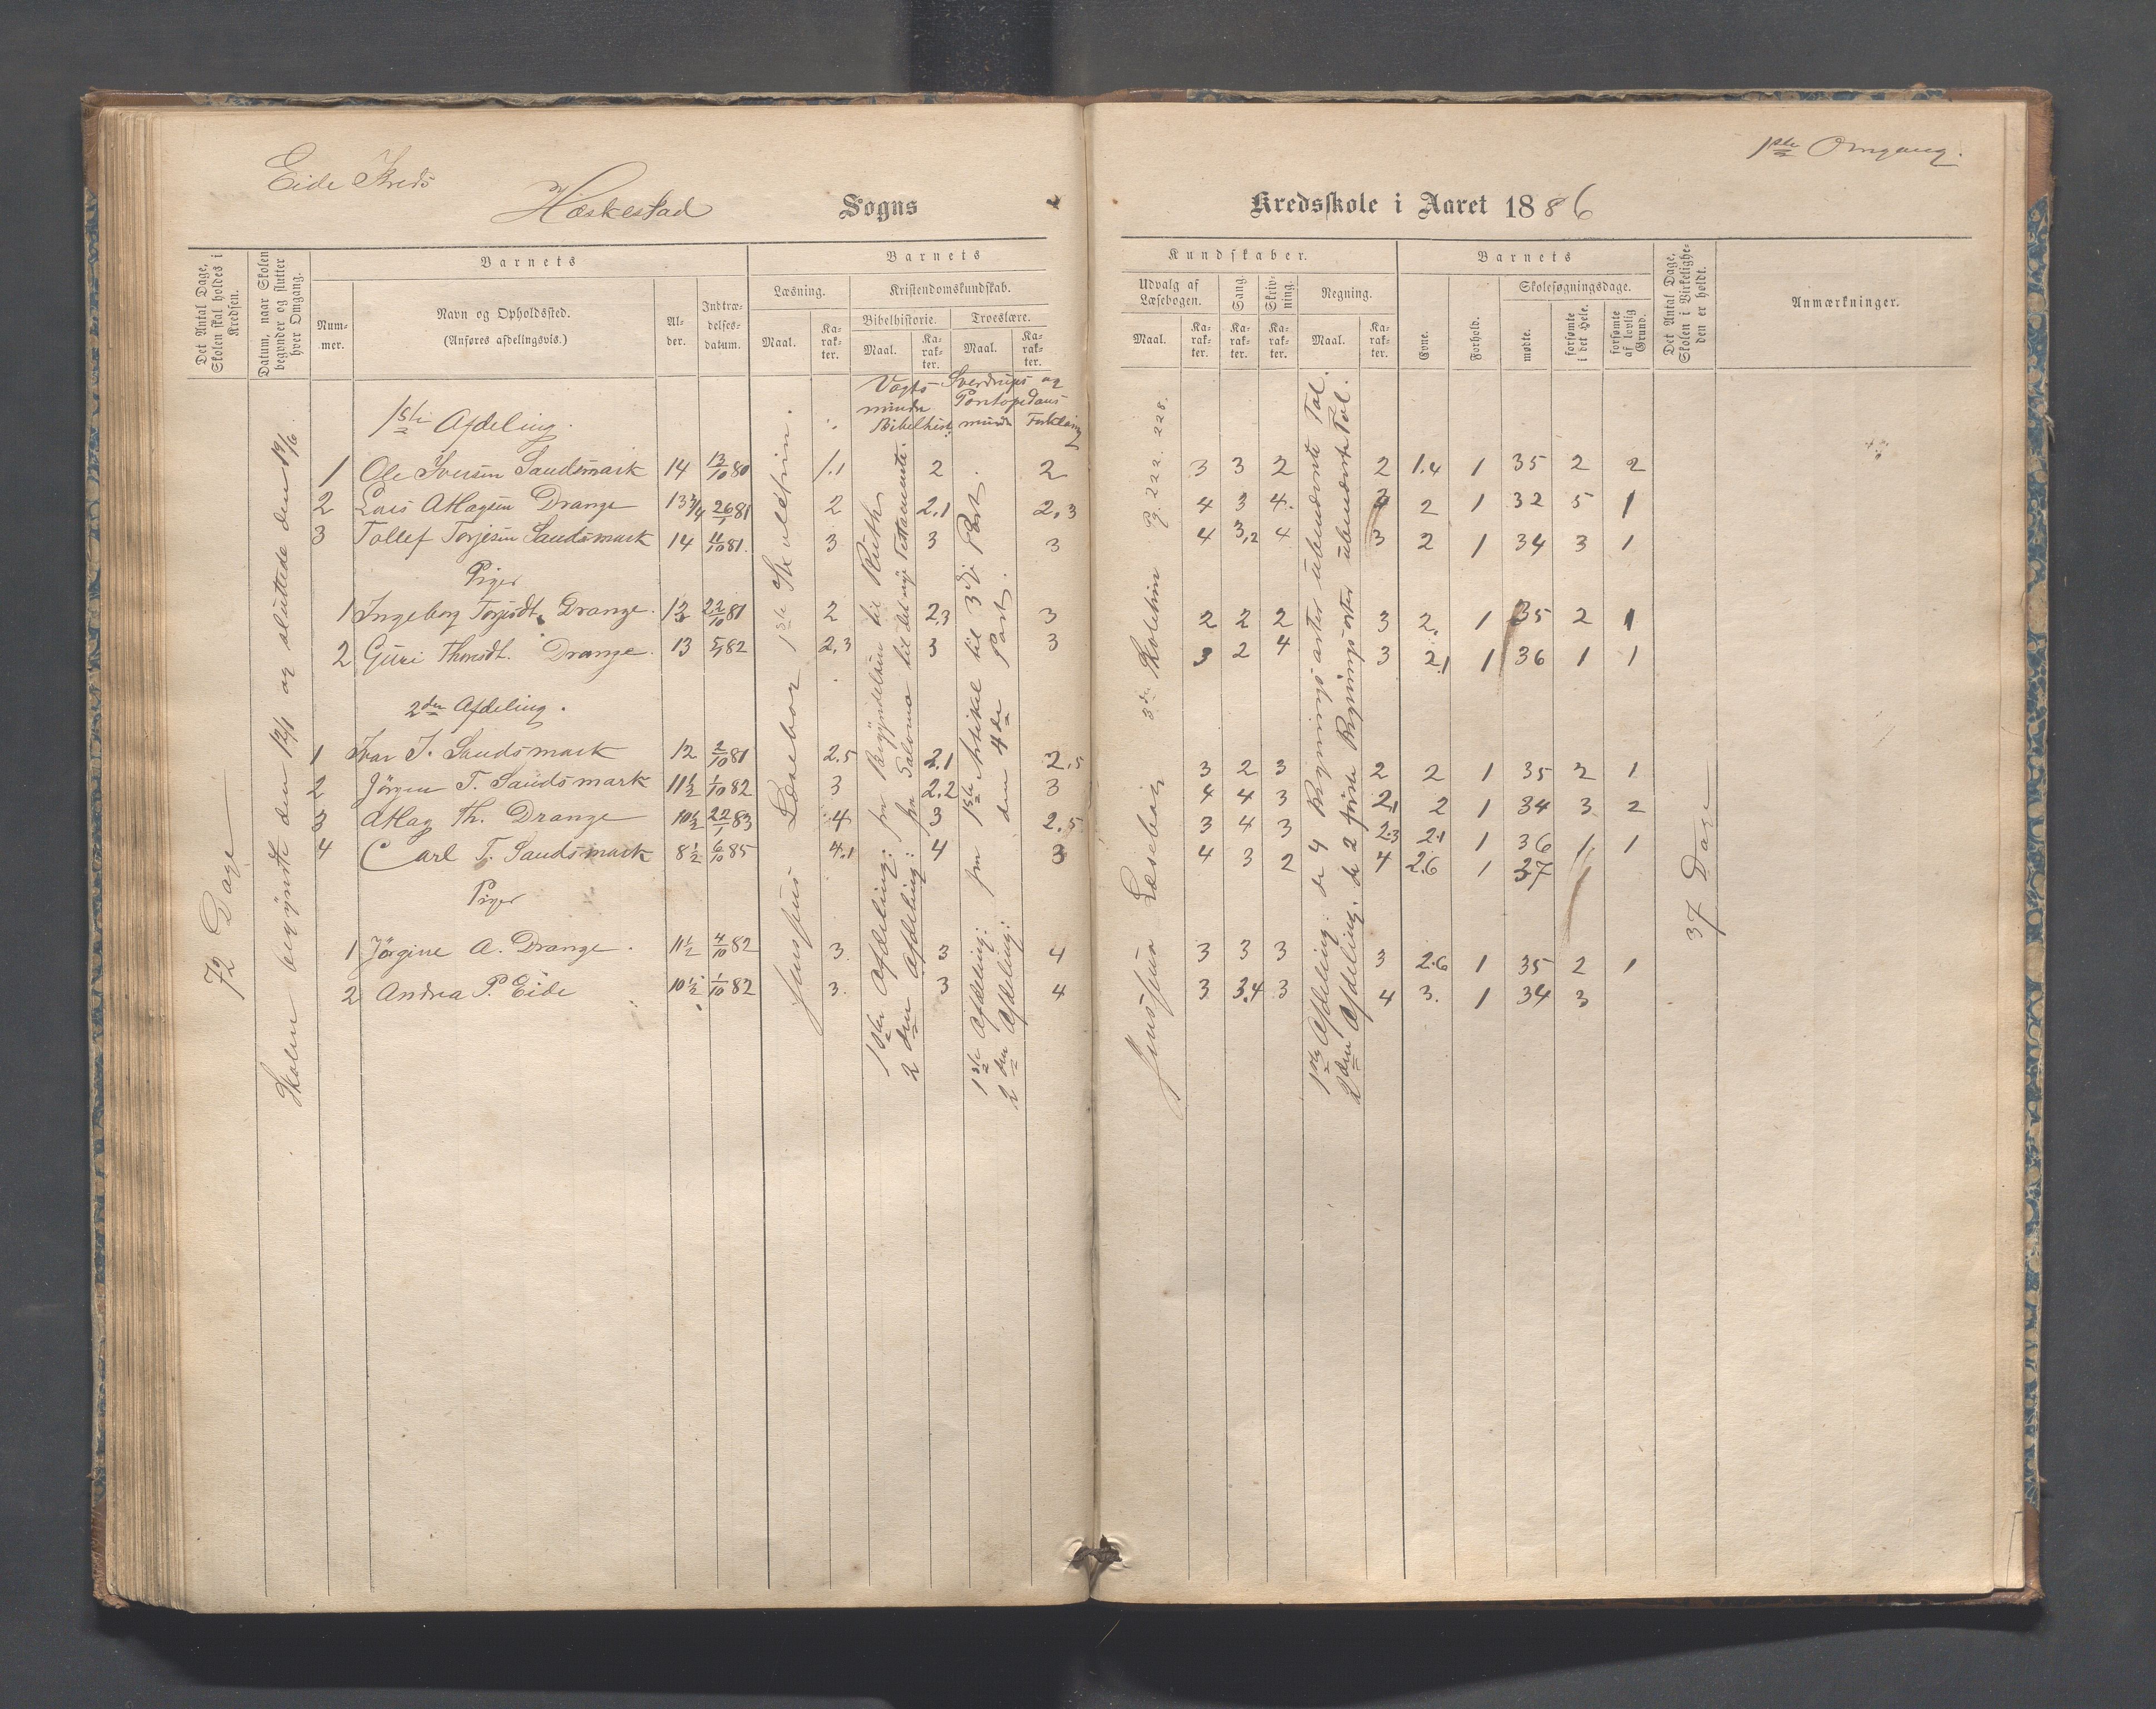 Eide Kreds
Hæskestad Sogns
Kredsskole i Aaret 1886
1ste Omgang.
Det Antal Dage, Skolen skal holdes i Kredsen.
Datum, naar Skolen begynder og slutter hver Omgang.
Barnets
Num-mer.
Navn og Opholdssted.
(Anføres afdelingsvis.)
Al-der.
Indtræ-delses-datum.
Barnets
Læsning.
Maal.
Ka-rak-ter.
Kristendomskundskab.
Bibelhistorie.
Maal.
Ka-rak-ter.
Troeslære.
Maal.
Ka-rak-ter.
Kundskaber.
Udvalg af Læsebogen.
Maal.
Ka-rak-ter.
Sang
Ka-rak-ter.
Skriv-ning.
Ka-rak-ter.
Regning.
Maal.
Ka-rak-ter.
Barnets
Evne.
Forhold.
Skolesøgningsdage.
mødte.
forsømte i det Hele.
forsømte af lovlig Grund.
Det Antal Dage, Skolen i Virkelighe-den er holdt.
Anmærkninger.
72 Dage
Skolen begyndte den 12/1 og sluttede den 19/6.
Jenssens Læsebog 1ste Skoletrin.
Vogts mindre Bibelhist:
Sverdrups og Pontopedans mindre Forklaring
1ste Afdeling: fra Begyndelsen til Ruth
2den Afdeling: fra Salomo til det nye Testamente.
1ste Afdeling: fra 1ste Artikel til 3die Part
2den Afdeling: den 4de Part.
Jenssens Læsebog 3die Skoletrin Pg. 222 228.
1ste Afdeling: de 4 Regningsarter übenævnte Tal.
2den Afdeling: de 2 første Regningsarter übenævnte Tal.
37 Dage
1ste Afdeling.
1 Ole Iversen Saudsmark 14 13/10 80 1.1 2 2 3 3 2 2 1.4 1 35 2 2
2 Lars Aslagsen Drange 13 3/4 26/1 81 2 2.1 2.3 4 3 4 2 1 32 5 1
3 Tollef Torjesen Saudsmark 14 11/10 81. 3 3 3 4 3,2 4 3 2 1 34 3 1
Piger
1 Ingeborg Torjesdt. Drange. 13 22/10 81 2 2,3 3 2 2 2 3 2. 1 35 2 1
2 Guri Thorsdt. Drange. 13 82 2.3 3 3 3 2 4 3 2,1 1 36 1 1
2den Afdeling.
1 Ivar I. Saudsmark 12 2/10 81 2.5 2.1 2.5 3 2 3 2 2 1 35 2 1
2 Jørgen T. Saudsmark 11 1/2 1/10 82 3 2.2 3 4 4 3 2,1 2 1 34 3 2
3 Aslag Th. Drange 10 1/2 22/1 83 4 3 2.5 3 4 3 2.3 2.1 1 36 1 1
4 Carl T. Saudsmark 8 1/2 6/10 85 4.1 4 3 4 3 2 4 2.6 1 37
Piger
1 Jørgine A. Drange. 11 1/2 4/10 82 3. 3 4 3 3 3 3 2.6 1 35 2 1
2 Andrea P. Eide 10 1/2 1/10 82 3. 3 4 3 3.4 3 4 3. 1 34 3